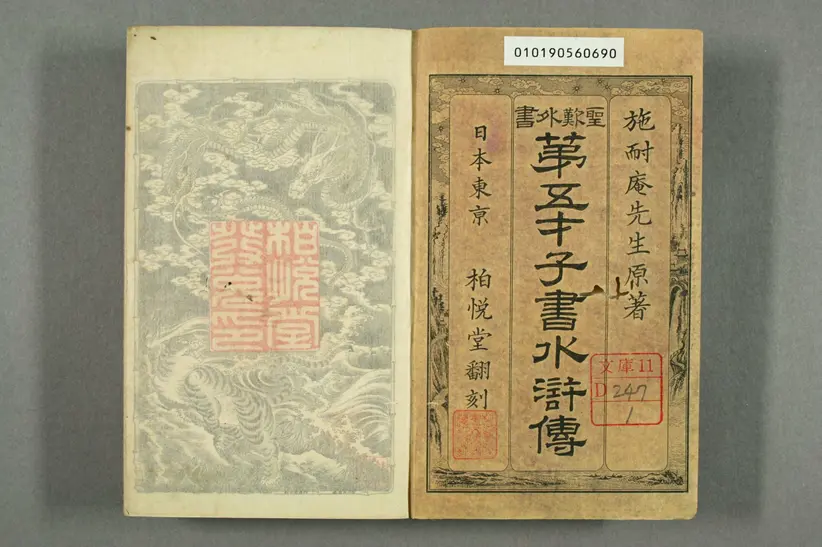 010190560690
施耐庵先生原著
聖歎外書
第五才子書水滸傳
日本東京 柏悦堂翻刻
文庫11
D 247
1
柏悦堂
發兌印